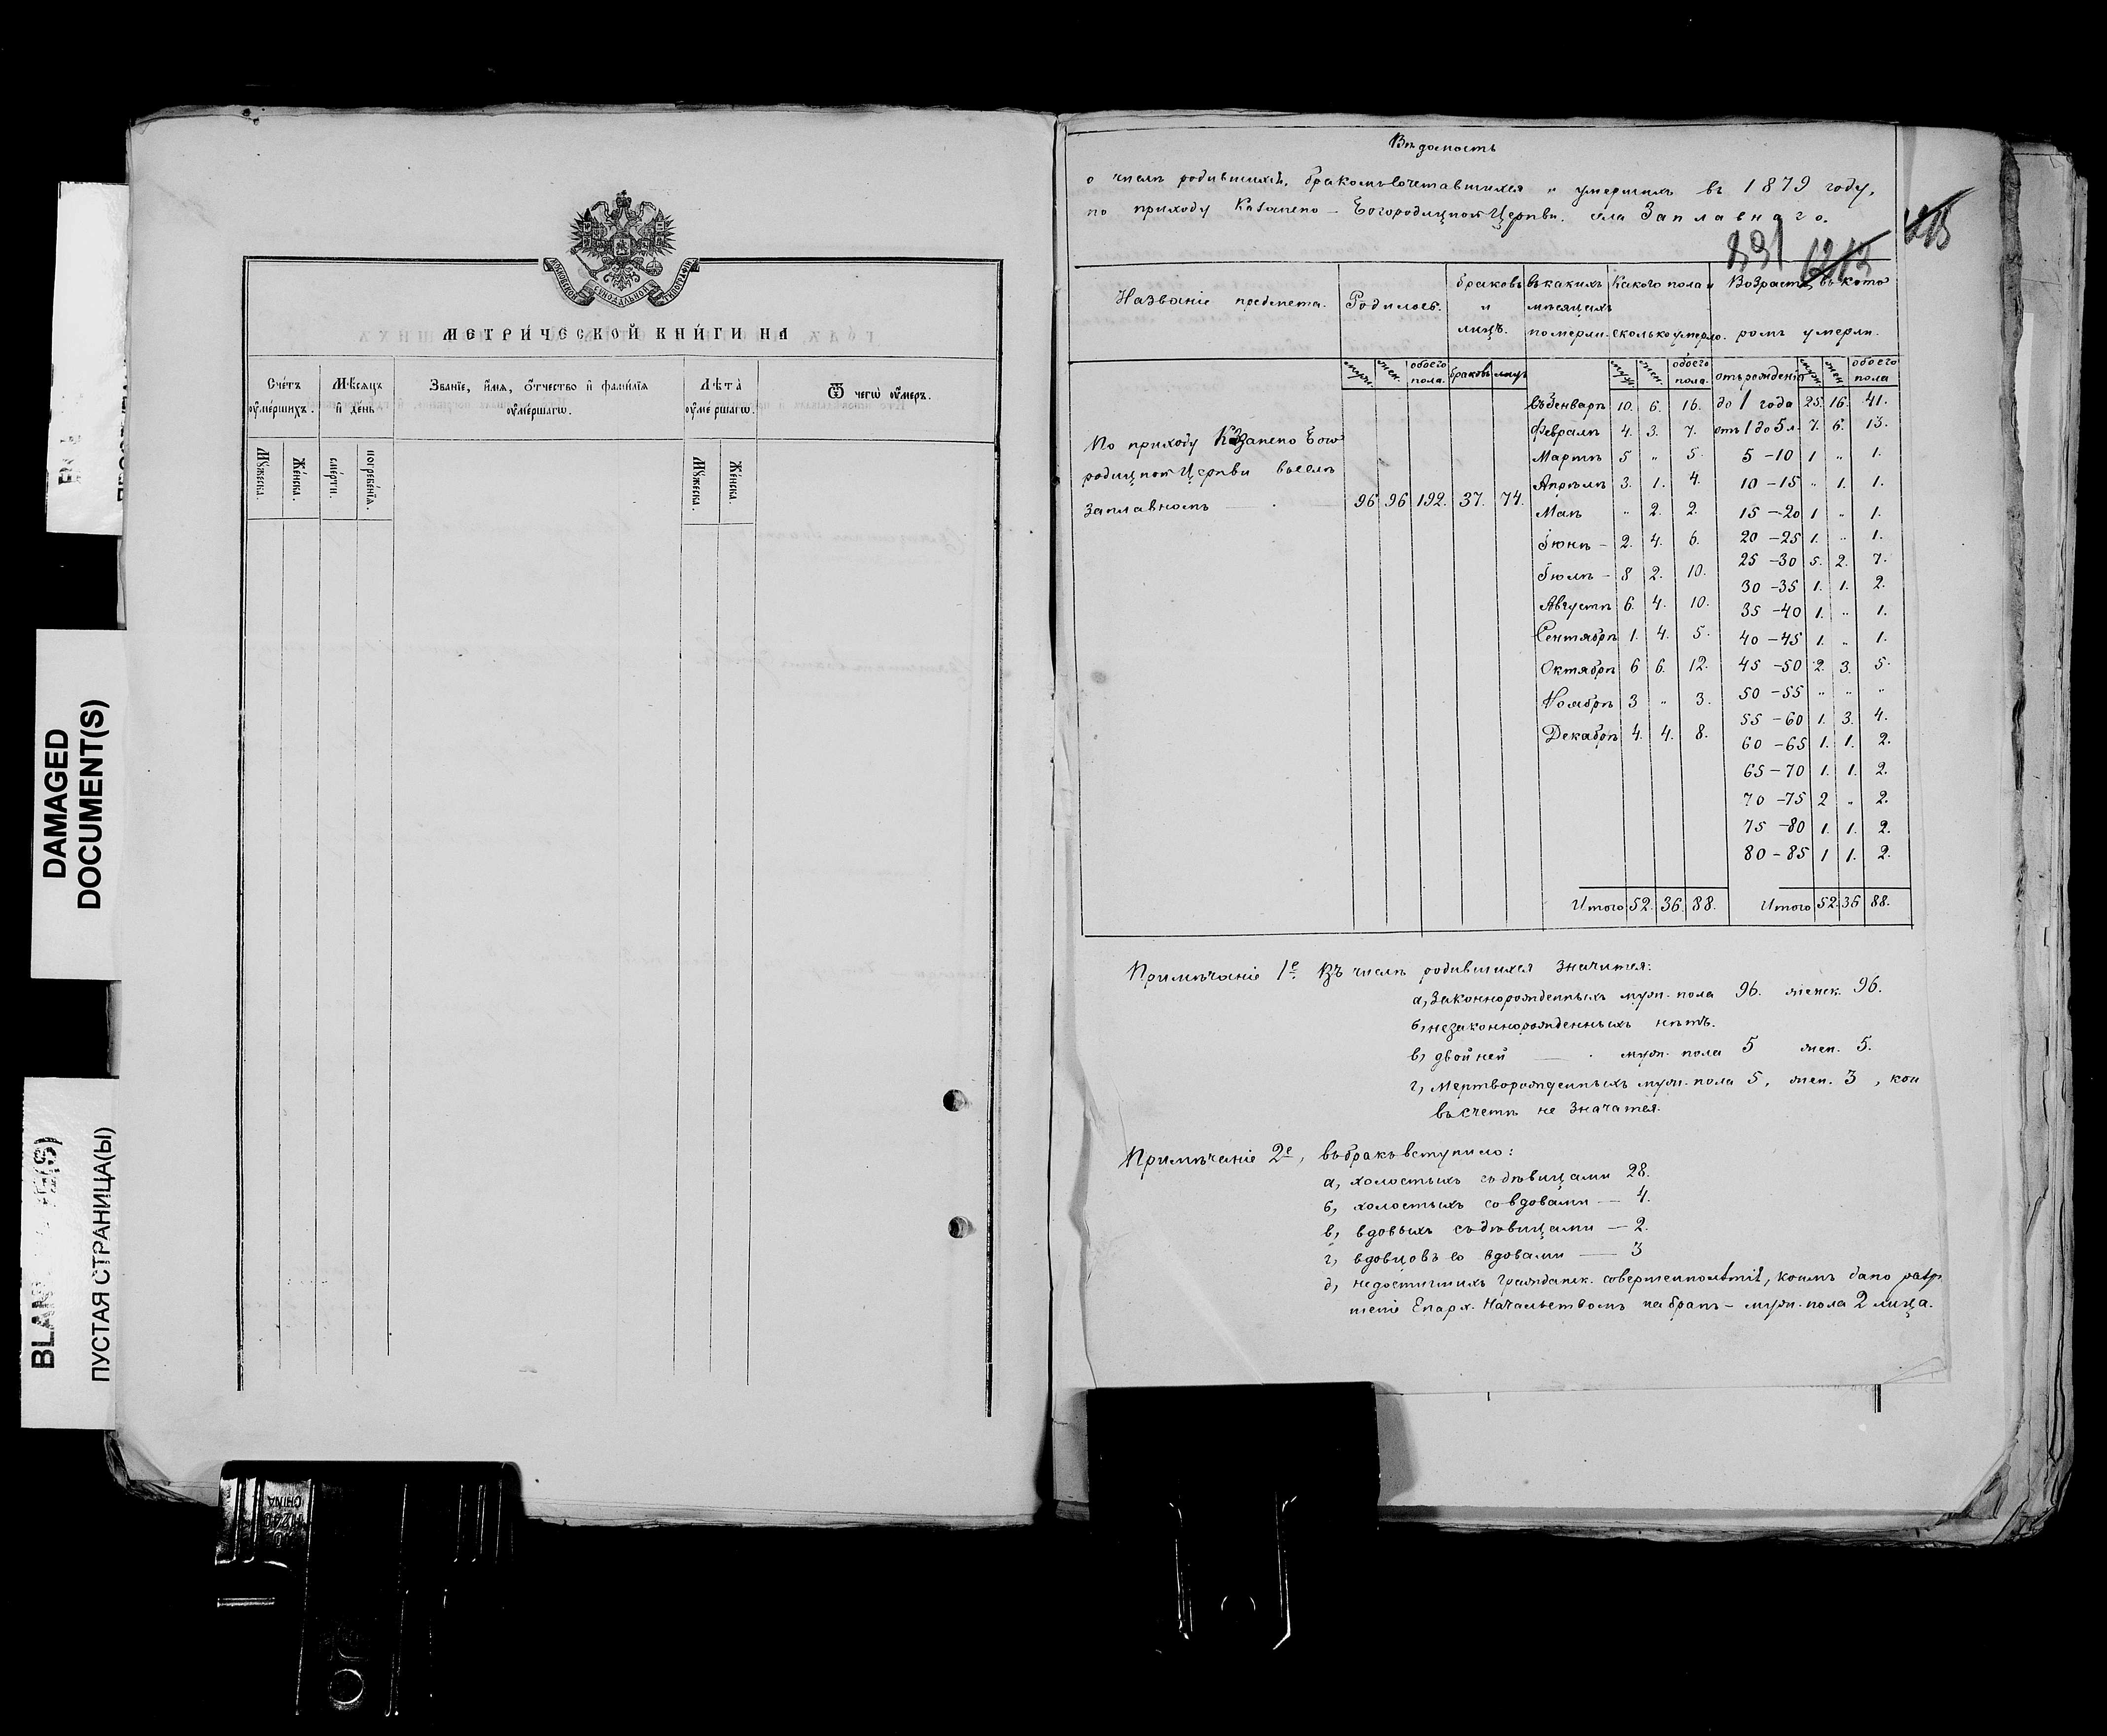 DAMAGED
DOCUMENT(S)
ПУСТАЯ СТРАНИЦА(Ы)
МОСКОВСКОЙ СѴНОДАЛЬНОЙ ТИПОГРАФІИ
МЕТРИ́ЧЕСКОЙ КНИ́ГИ НА
Сче́тъ ᲂу҆ме́ршихъ.
Мѣ́сяцъ и҆ де́нь
Зва́нїе, и҆́мя, ѻ҆́тчество и҆ фами́лїя ᲂу҆ме́ршагѡ.
Лѣ́та ᲂу҆ме́ршагѡ.
Ѿ чегѡ̀ ᲂу҆́меръ.
Мꙋ́жеска.
Же́нска.
сме́рти.
погребе́нїѧ.
Мꙋ́жеска.
Же́нска.
Вѣдомость
о числѣ родившихся, бракомъ сочетавшихся и умершихъ въ 1879 году,
по приходу Казанско-Богородицкой Церкви села Заплавнаго.
891 1213
Названіе предмета.
Родилось.
браковъ и лицъ.
въ какихъ мѣсяцахъ померли.
Какого пола и сколько умерло.
Возрастъ, въ которомъ умерли.
муж. жен. обоего пола. браковъ лицъ муж. жен. обоего пола. отъ рожденія муж. жен. обоего пола
По приходу Казанско Бого
родицкой Церкви въ селѣ
Заплавномъ — 96 96 192. 37. 74.
въ Январѣ 10. 6. 16. до 1 года 25. 16. 41.
Февралѣ 4. 3. 7. отъ 1 до 5 л. 7. 6. 13.
Мартѣ 5 „ 5. 5-10 1 „ 1.
Апрѣлѣ 3. 1. 4. 10-15 „ 1. 1.
Маѣ „ 2. 2. 15-20 1 „ 1.
Іюнѣ - 2. 4. 6. 20-25 1. „ 1.
25-30 5. 2. 7.
Іюлѣ - 8 2. 10. 30-35 1. 1. 2.
Августѣ 6. 4. 10. 35-40 1. „ 1.
Сентябрѣ 1. 4. 5. 40-45 1. „ 1.
Октябрѣ 6 6. 12. 45-50 2. 3. 5.
Ноябрѣ 3 „ 3. 50-55 „ „ „
55-60 1. 3. 4.
Декабрѣ 4. 4. 8. 60-65 1. 1. 2.
65-70 1. 1. 2.
70-75 2 „ 2.
75-80 1. 1. 2.
80-85 1 1. 2.
Итого 52. 36. 88. Итого 52. 36 88.
Примѣчаніе 1е. Въ числѣ родившихся значится:
а, Законнорожденныхъ муж. пола 96. женск. 96.
б, незаконнорожденныхъ нѣтъ.
в, двойней — муж. пола 5 жен. 5.
г, Мертворожденныхъ муж. пола 5, жен. 3, кои
въ счетъ не значатся.
Примѣчаніе 2е, въ бракъ вступило:
а, холостыхъ съ дѣвицами 28.
б, холостыхъ со вдовами — 4.
в, вдовыхъ съ дѣвицами — 2.
г, вдовцовъ со вдовами — 3
д, недостигшихъ гражданск. совершеннолѣтія, коимъ дано разрѣ
шеніе Епарх. Начальствомъ на бракъ - муж. пола 2 лица.